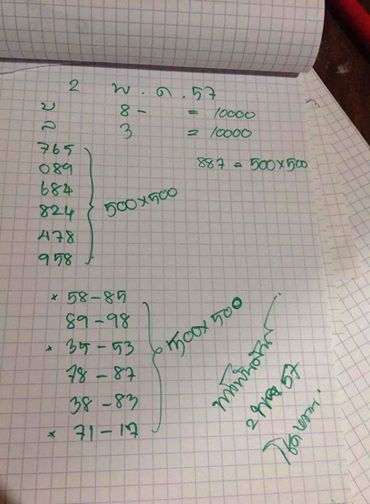 2 พ.ค.57
บ 8- = 10000
ล 3 = 10000
765
089
684
824
478
958
500x500
887 = 500x500
* 58-85
89-98
* 35-53
78-87
38-83
* 71-17
1500x500
57